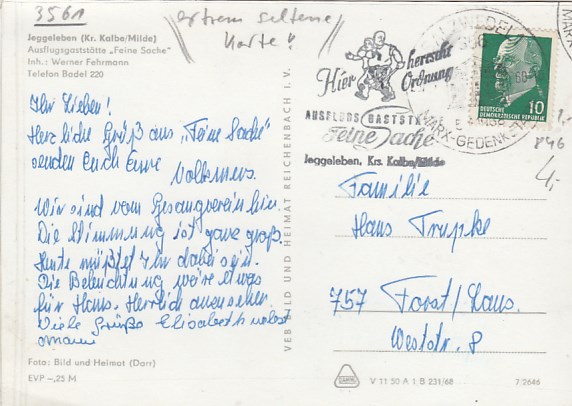 3561
extrem seltene
Karte!
Jeggeleben (Kr. Kalbe/Milde)
Ausflugsgaststätte „Feine Sache"
Inh.: Werner Fehrmann
Telefon Badel 220
Ihr Lieben!
Herzliche Grüße aus „Feine Sache"
senden Euch Eure
Volkmers.
Wir sind vom Gesangverein hier.
Die Stimmung ist ganz groß.
Heute müßtet Ihr dabei sein.
Die Beleuchtung wäre etwas
für Hans. Herrlich anzusehen.
Viele Grüße Elisabeth nebst
Mann
Foto: Bild und Heimat (Darr)
EVP –,25 M
VEB BILD UND HEIMAT REICHENBACH I. V.
Hier herrscht
Ordnung
AUSFLUGS GASTST
Feine Sache
Jeggeleben, Krs. Kalbe/Milde
MARK-GEDENK
DEUTSCHE
DEMOKRATISCHE REPUBLIK
10
846
4,-
Familie
Hans Trupke
757 Forst/Laus.
Weststr. 8
V 11 50 A 1 B 231/68
7/2646